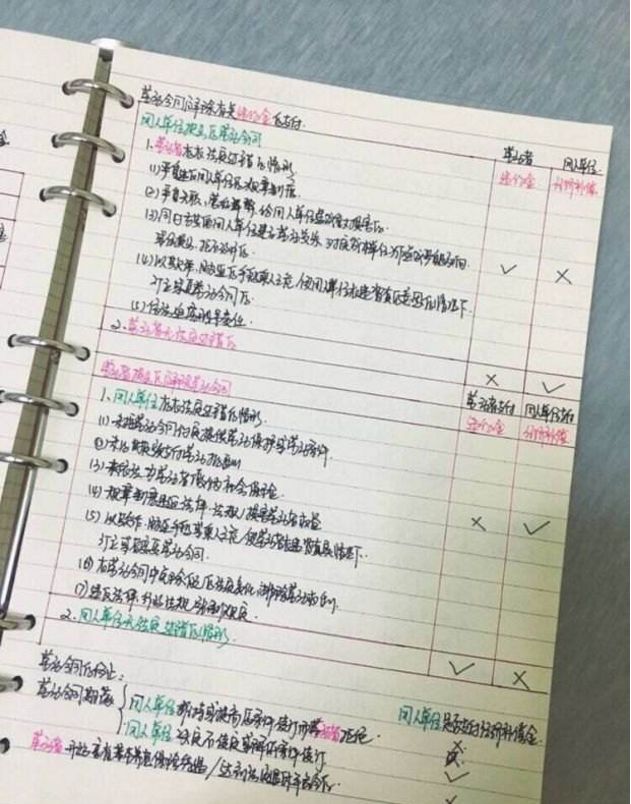 劳动合同解除有关违约金的支付
劳动者 用人单位
用人单位提出解劳动合同
违约金 经济补偿
1.劳动者存在法定过错的情形
(1)严重违反用人单位的规章制度
(2)严重失职,营私舞弊,给用人单位造成重大损害的
(3)同时与其他用人单位建立劳动关系,对完成本单位工作任务造成严重影响
或经提出,拒不改正的
✓ ×
(4)以欺诈、胁迫的手段或乘人之危,使用人单位在违背真实意思的情况下
订立或变更劳动合同的
(5)依法追究刑事责任
2.劳动者无法定过错的
× ✓
劳动者提出的解除劳动合同
劳动者支付 用人单位支付
违约金 经济补偿
1、用人单位存在法定过错的情形
(1)未按劳动合同约定提供劳动保护或劳动条件
(2)未及时足额支付劳动报酬
(3)未依法为劳动者缴纳社会保险金
(4)规章制度违反法律、法规,损害劳动者权益
× ✓
(5)以欺诈、胁迫手段或乘人之危,使劳动者在违背真实情况下
订立或变更劳动合同
(6)在劳动合同中免除自己的法定责任,排除劳动者权利
(7)违反法律、行政法规强制性规定
2.用人单位无法定过错的情形
✓ ×
劳动合同的终止:
用人单位是否支付经济补偿金
劳动合同期满
用人单位维持或提高原条件续订而劳动者拒绝 ×
用人单位决定不续或降低原条件续订 ✓
劳动者开始享有基本养老保险待遇/达到法定退休年龄 ×